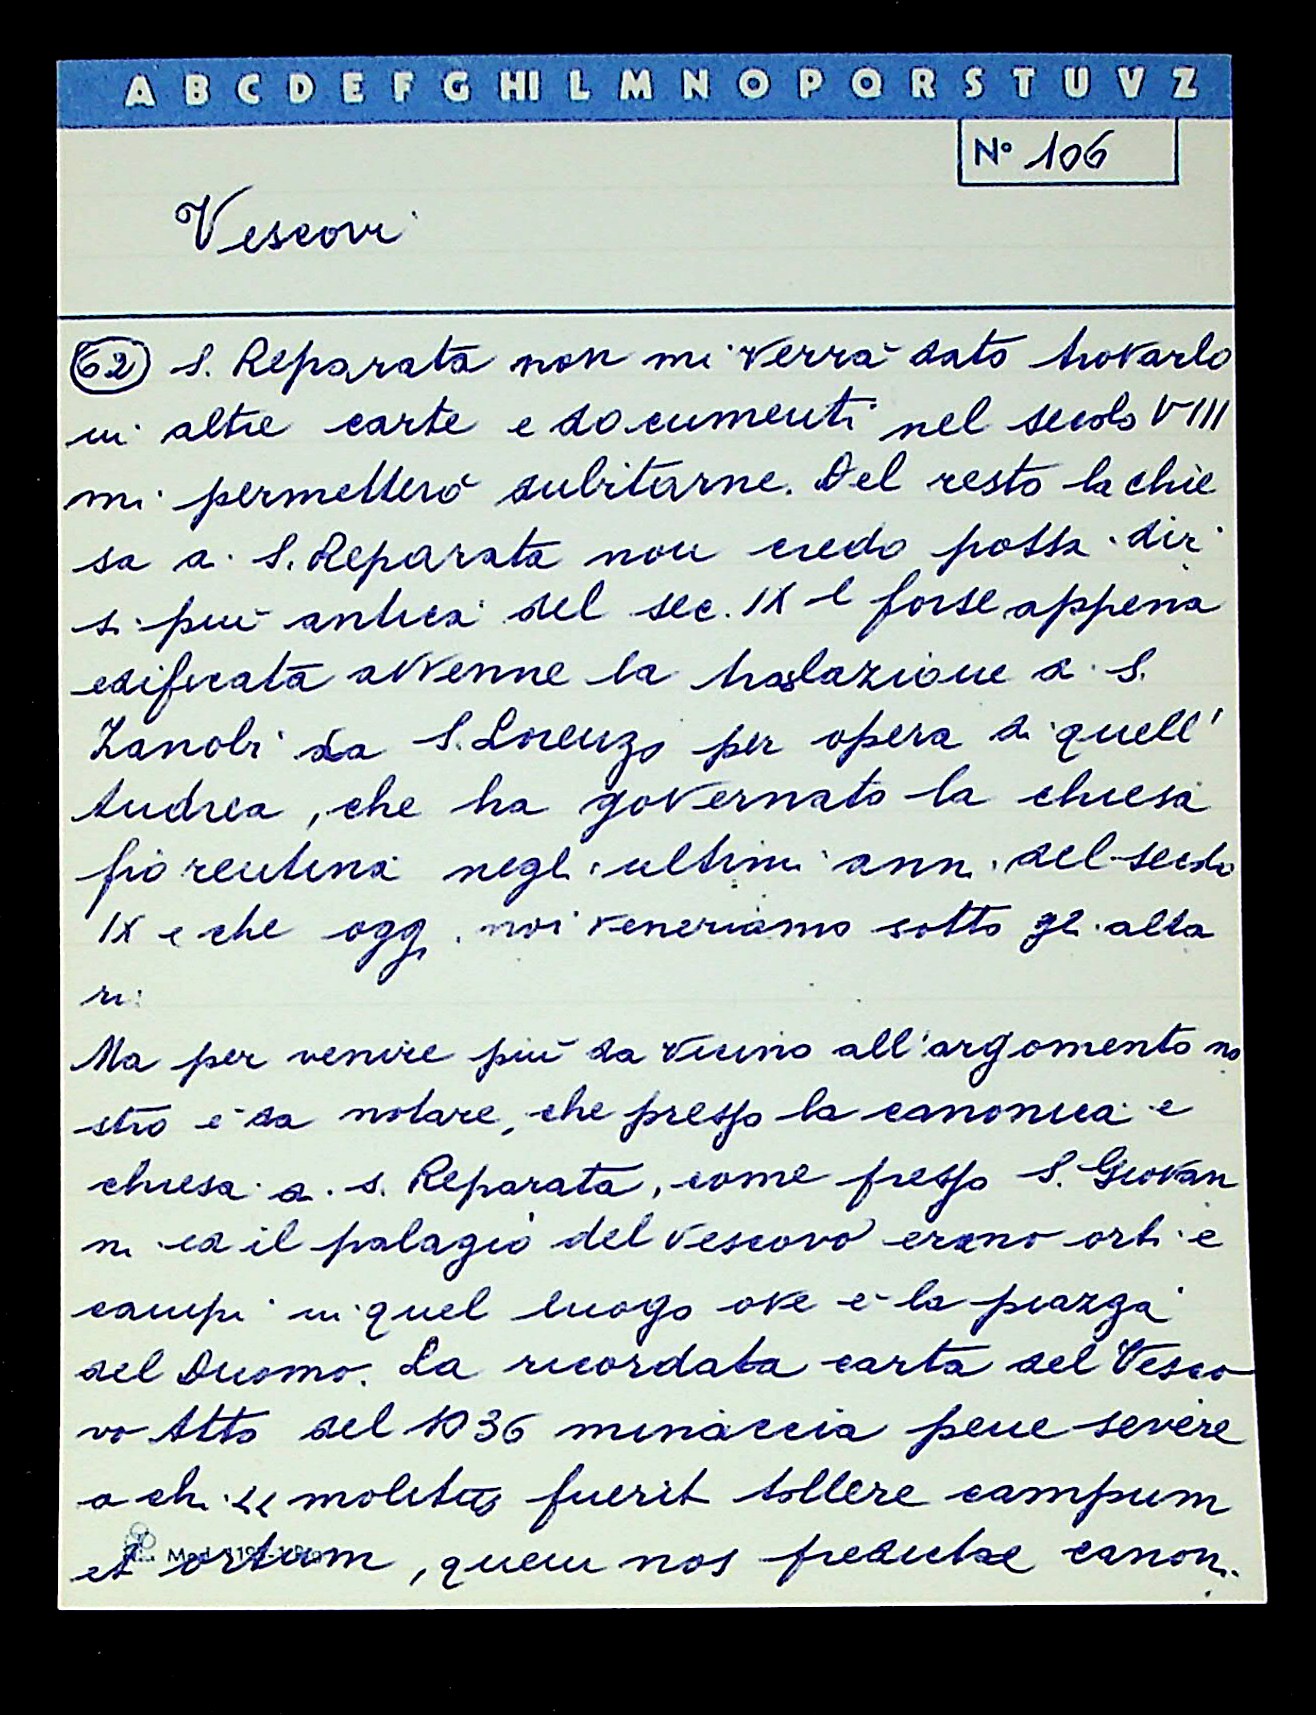 A B C D E F G H I L M N O P Q R S T U V Z
N° 106
Vescovi
62 S. Reparata non mi verrà dato trovarlo
in altre carte e documenti nel secolo VIII
mi permetterò dubitarne. Del resto la chie
sa di S. Reparata non credo possa dir
si più antica del sec. IX e forse appena
edificata avvenne la traslazione di S.
Zanobi da S. Lorenzo per opera di quell'
Andrea, che ha governato la chiesa
fiorentina negli ultimi anni del secolo
IX e che oggi noi veneriamo sotto gli alta
ri.
Ma per venire più da vicino all'argomento no
stro è da notare, che presso la canonica e
chiesa di S. Reparata, come presso S. Giovan
ni ed il palagio del Vescovo erano orti e
campi in quel luogo ove è la piazza
del Duomo. La ricordata carta del Vesco
vo Atto del 1036 minaccia pene severe
a chi << molitus fuerit tollere campum
et ortum, quem nos predictae canoni.
Mod.